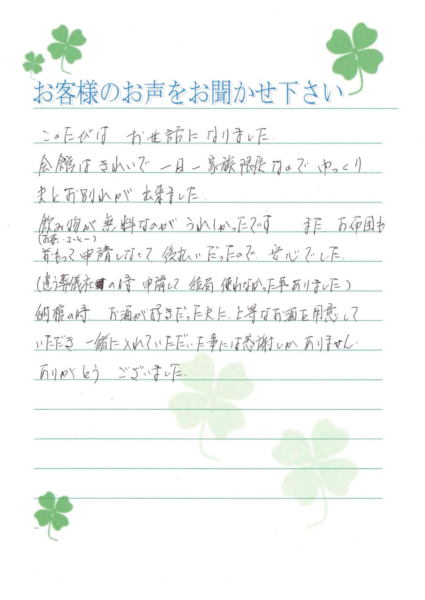 お客様のお声をお聞かせ下さい
このたびは お世話になりました.
会館はきれいで 一日一家族限定なので ゆっくり
夫とお別れが 出来ました.
飲み物が 無料なのが うれしかったです また、お布団も
(お茶・コーヒー)
前もって申請しなくて 後払いだったので、安心でした.
(違う葬儀社の時 申請して 結局 使わなかった事ありました)
納棺の時 お酒が好きだった夫に、上等なお酒を用意して
いただき 一緒に入れていただいた事には感謝しか ありません.
ありがとう ございました.